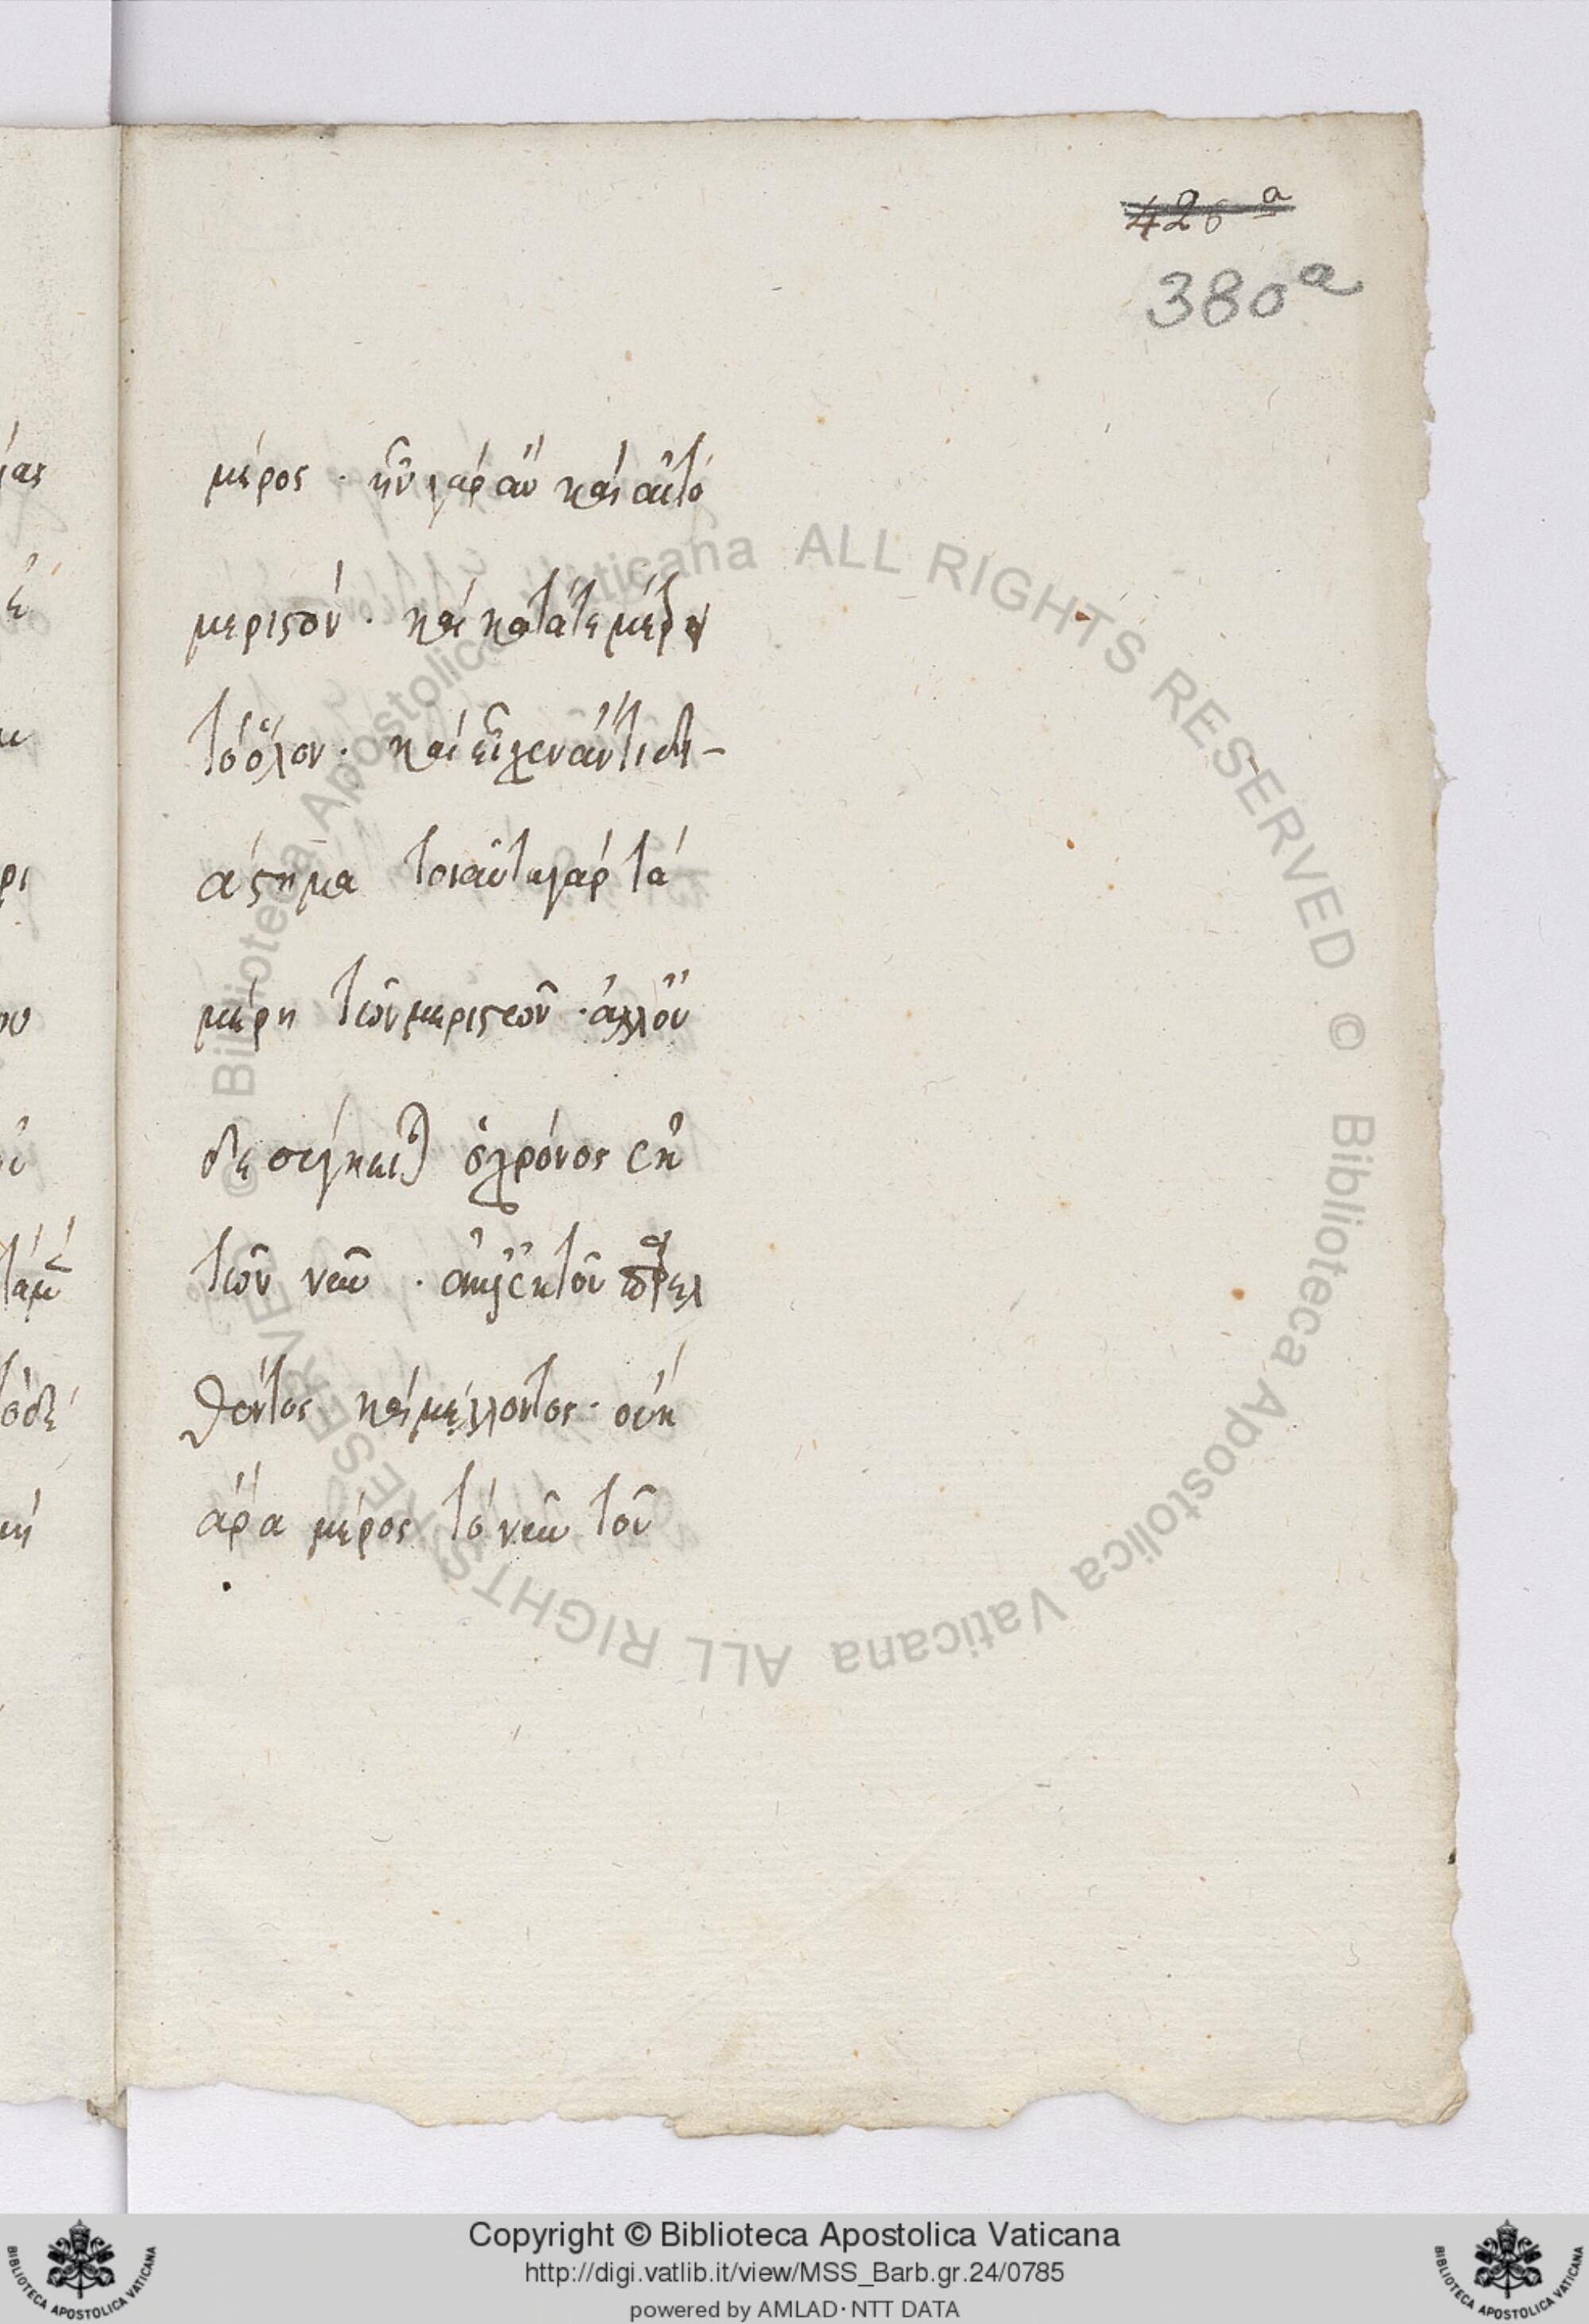 426 a
380 a
μέρος · ἦν γὰρ ἂν καὶ αὐτὸ
μεριστόν · καὶ κατὰ τε
τὸ ὅλον · καὶ εἶχεν ἄν τι δι-
άστημα τοιαῦτα γὰρ τὰ
μέρη τῶν μεριστῶν · ἀλλ οὐ
δε σύγκειται ὁ χρόνος ἐκ
τῶν νῦν · ἀλλ ἐκ τοῦ παρελ
θόντος καὶ μέλλοντος · οὐκ
ἄρα μέρος τὸ νῦν τοῦ
© Biblioteca Apostolica Vaticana ALL RIGHTS RESERVED © Biblioteca Apostolica Vaticana ALL RIGHTS RESERVED
Copyright © Biblioteca Apostolica Vaticana
http://digi.vatlib.it/view/MSS_Barb.gr.24/0785
powered by AMLAD·NTT DATA
BIBLIOTECA APOSTOLICA VATICANA
BIBLIOTECA APOSTOLICA VATICANA